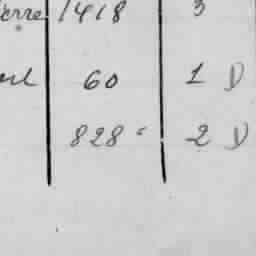 ierre 1418 3
60 1 D
828 2 D